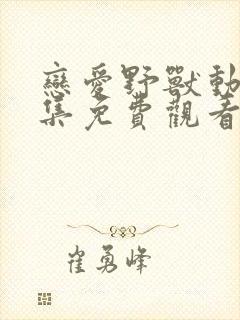 戀愛野獸動
集免費觀看
崔勇峰